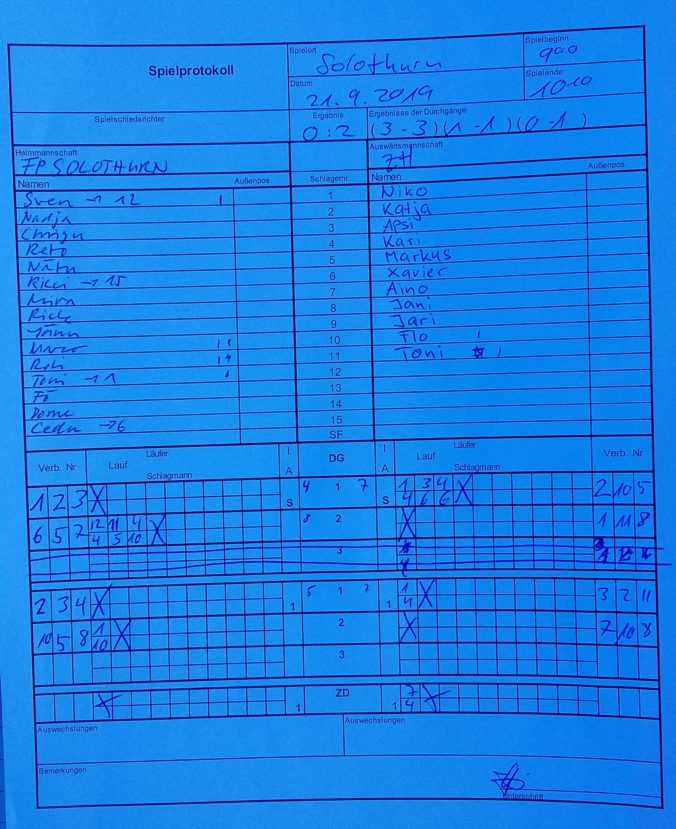 Spielprotokoll
Spielort
Solothurn
Spielbeginn
900
Datum
21.9.2019
Spielende
1010
Spielschiedsrichter
Ergebnis
0:2
Ergebnisse der Durchgänge
(3-3)(1-1)(0-1)
Heimmannschaft
FP SOLOTHURN
Auswärtsmannschaft
ZH
Namen Außenpos. Schlagernr. Namen Außenpos.
Sven → 12 1 Niko
Nadja 2 Katja
Chrigu 3 Apsi
Reto 4 Kari
Nätu 5 Markus
Ricci → 15 6 Xavier
Mira 7 Aino
8 Jani
9 Jari
Marco 10 Flo
Röli 11 Toni
Tomi → 1 12
Fö 13
Dome 14
Cedu → 6 15
SF
Verb. Nr Lauf Läufer Schlagmann I A DG I A Lauf Läufer Schlagmann Verb. Nr
1 2 3 X S 4 1 7 S 1 3 4 X 2 10 5
4 6 6
6 5 7 12 11 4 X 8 2 X 1 11 8
4 5 10
3
2 3 4 X 1 5 1 7 1 1 X 3 2 11
4
10 5 8 1 X 2 X 7 10 8
10
3
X 1 ZD 1 7 X
4
Auswechslungen Auswechslungen
Bemerkungen
Unterschrift